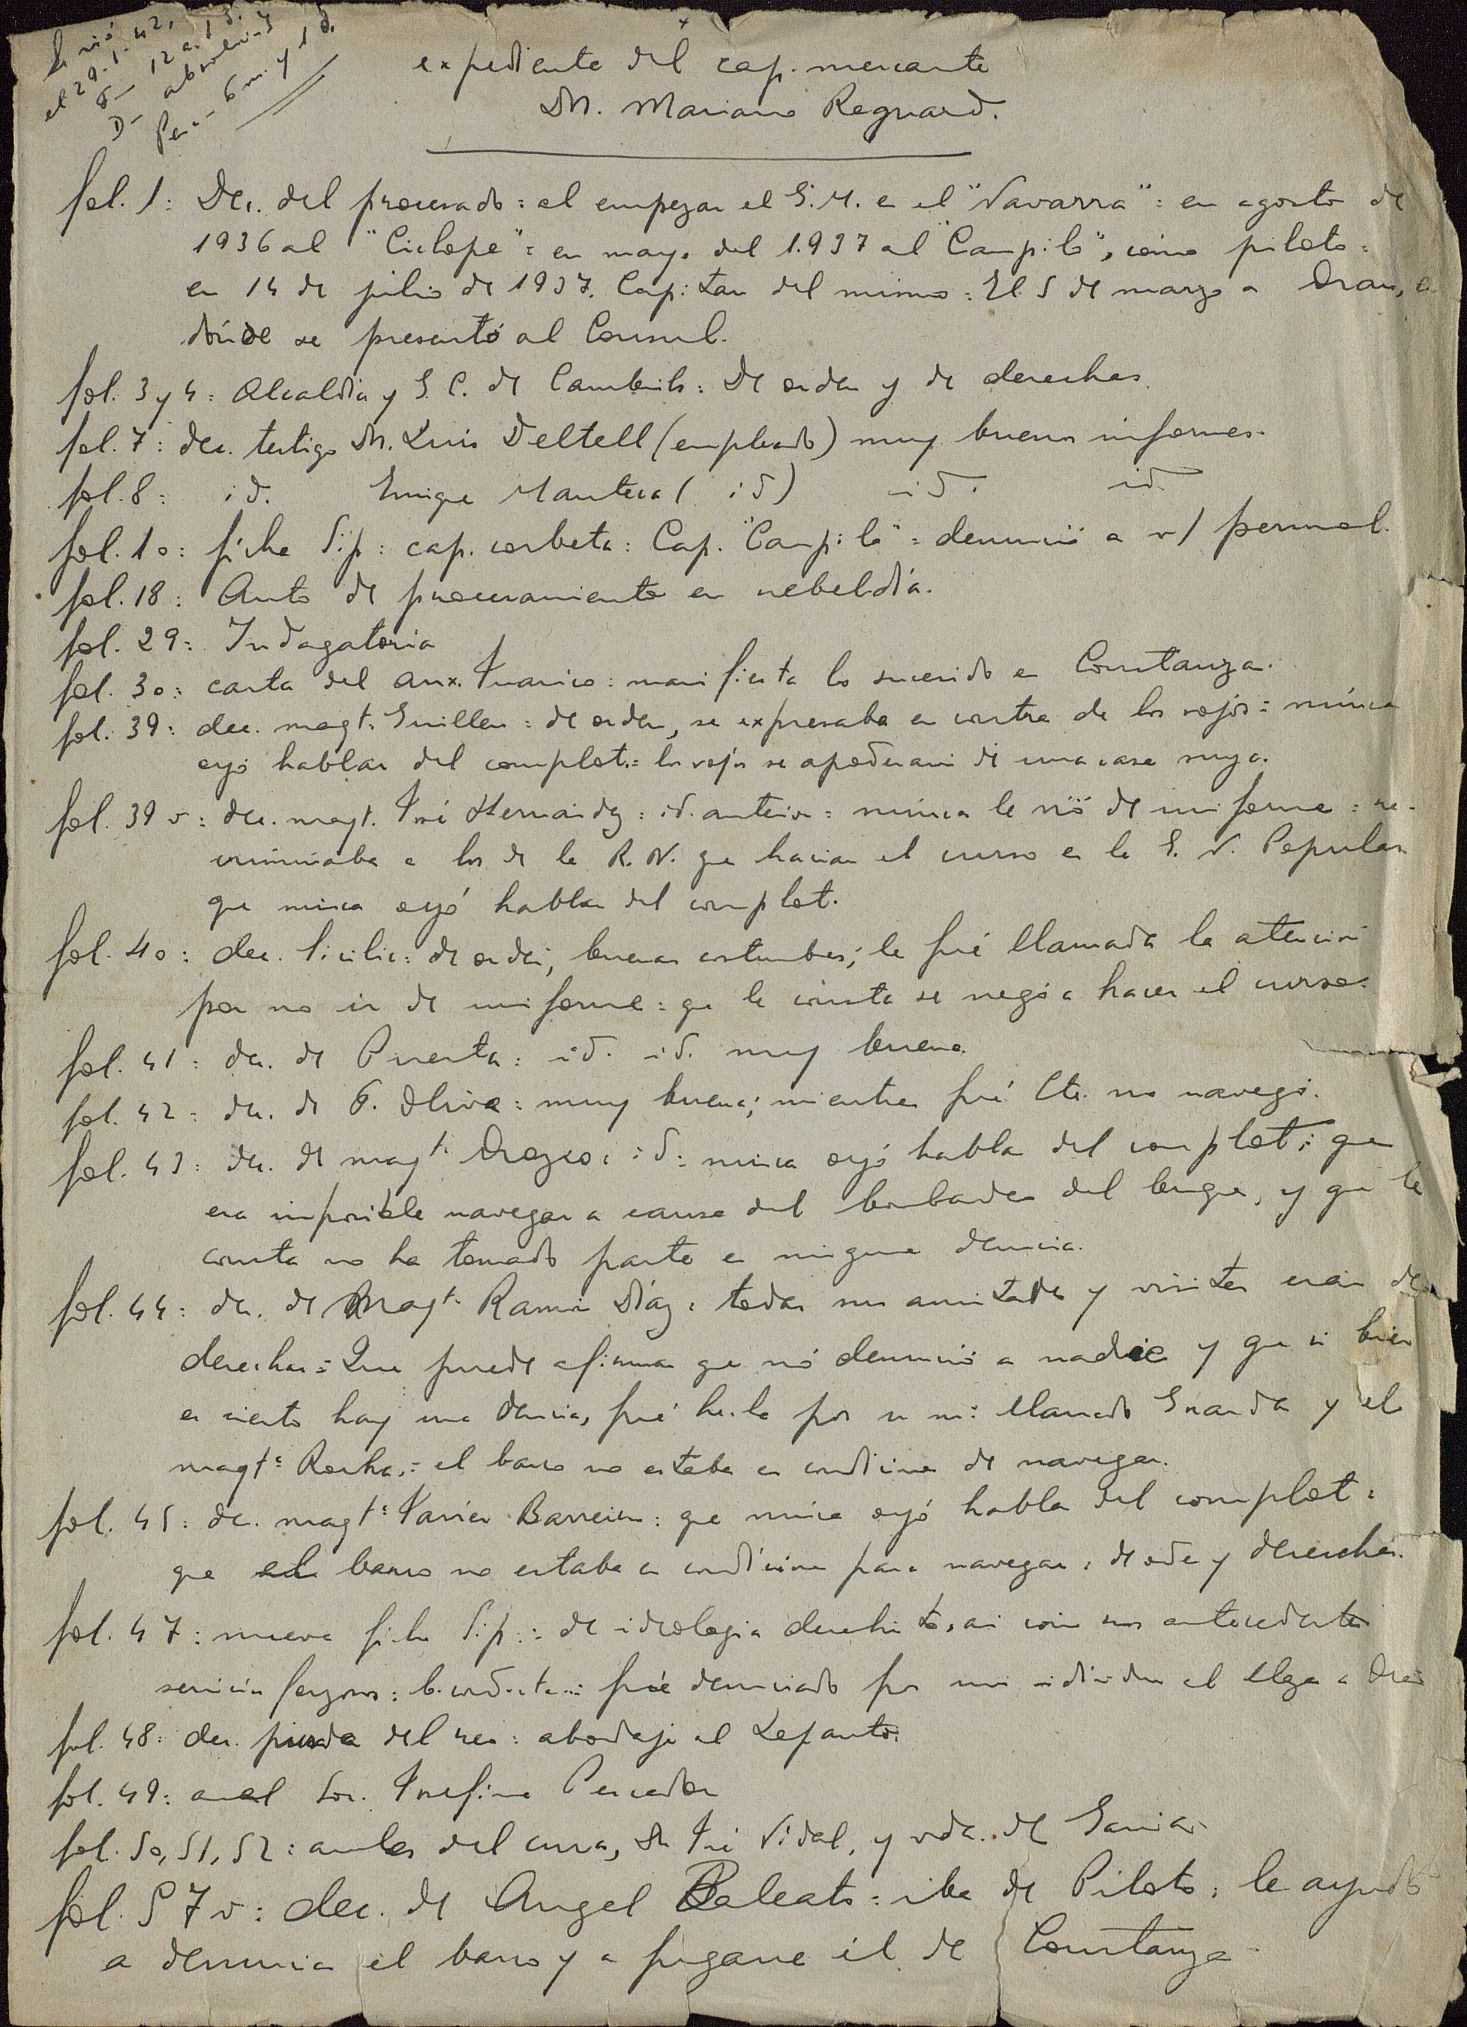 Se vió
el 29-1-42,
F- 12 a. 1 d.
D- absolución
Pena- 6 m. y 1 d.
expediente del cap. mercante
Dn. Mariano Reguard.
fol. 1: Dec. del procesado = al empezar el G.M. en el "Navarra" = en agosto de
1936 al "Ciclope" = en mayo del 1.937 al "Campilo", como piloto =
en 14 de julio de 1937. Capitan del mismo = El 5 de marzo a Oran, en
dónde se presentó al Consul.
fol. 3 y 4: Alcaldia y G. C. de Cambrils = De orden y de derechas.
fol. 7: dec. testigo Dn. Luis Deltell (empleado) muy buenos informes.
fol. 8: id. Enrique Manteca ( id ) id. id
fol. 10: ficha Sip: cap. corbeta: Cap. "Campilo" = denunció a v/ personal.
fol. 18: Auto de procesamiento en rebeldia.
fol. 29: Indagatoria
fol. 30: carta del aux. : manifiesta lo sucedido en Constanza.
fol. 39: dec. magt. Guillen = de orden, se expresaba en contra de los rojos = núnca
oyó hablar del complot = los rojos se apoderaron de una casa suya.
fol. 39 v: dec. magt. José Hernandez: id. anterior = núnca le vió de uniforme = re-
criminaba a los de la R. N. que hacian el curso en la E. N. Popular
que nunca oyó hablar del complot.
fol. 40: dec. Sicilia: de orden, buenas costumbres; le fué llamada la atención
por no ir de uniforme = que le consta se negó a hacer el curso.
fol. 41: dec. de Puerta: id. id. muy buena.
fol. 42: dec. de G. Oliva: muy buena; mientras fué Cte. no navegó.
fol. 43: dec. de magt. Orozco: id = nunca oyó hablar del complot; que
era imposible navegar a causa del bombardeo del buque, y que le
consta no ha tomado parte en ninguna denuncia.
fol. 44: dec. de Magt. Ramón Díaz: todas sus amistades y visitas eran de
derechas = Que puede afirmar que nó denunció a nadie y que si bien
es cierto hay una denuncia, fué hecha por un llamado Guarda y el
magt. Rocha = el barco no estaba en condiciones de navegar.
fol. 45: dec. magt. Javier Barreiro: que nunca oyó hablar del complot =
que el barco no estaba en condiciones para navegar: de orden y derechas.
fol. 47: nueva ficha Sip = de ideologia derechista, asi como sus antecedentes
servicios forzosos: b. conducta = fué denunciado por un individuo al llegar a Oran
fol. 48: dec. jurada del reo: abordaje al Lepanto.
fol. 49: aval Sor. Josefina Pescador
fol. 50, 51, 52: avales del cura, de José Vidal, y vda. de Garcia.
fol. 57 v: dec. de Angel Beleato = iba de Piloto: le ayudó
a denunciar el barco y a fugarse él de Constanza